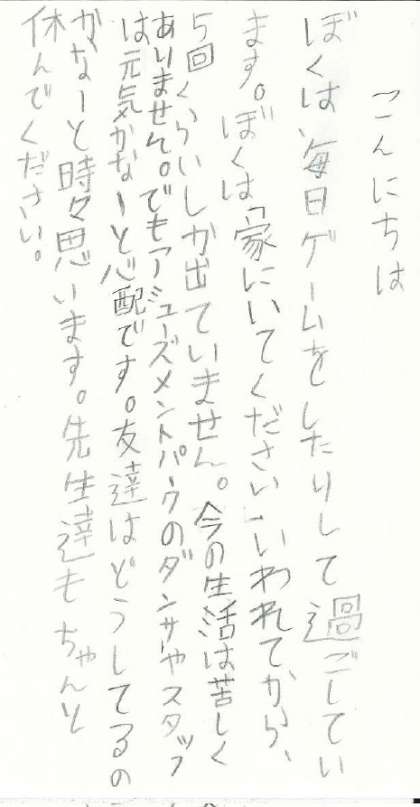 こんにちは
ぼくは、毎日ゲームをしたりして過ごしてい
ます。ぼくは「家にいてください」いわれてから、
5回くらいしか出ていません。今の生活は苦しく
ありません。でもアミューズメントパークのダンサーやスタッフ
は元気かなーと心配です。友達はどうしてるの
かなーと時々思います。先生達もちゃんと
休んでください。